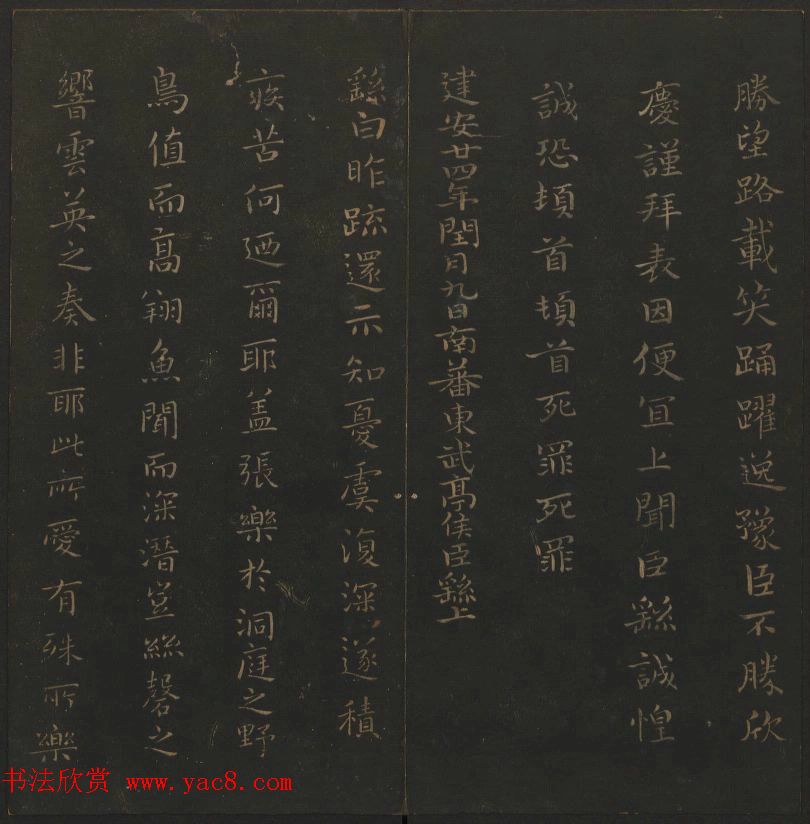 勝望路載笑踊躍逸豫臣不勝欣
慶謹拜表因便冝上聞臣繇誠惶
誠恐頓首頓首死罪死罪
建安廿四年閏月九日南蕃東武亭侯臣繇上
繇白昨疏還示知憂虞復深遂積
疾苦何迺爾耶盖張樂於洞庭之野
鳥值而高翔魚聞而深潛豈絲磬之
響雲英之奏非耶此所愛有殊所樂
书法欣赏 www.yac8.com